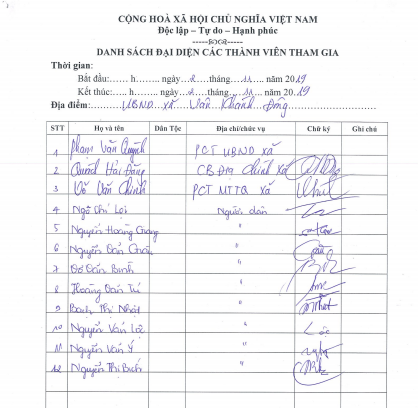 CỘNG HOÀ XÃ HỘI CHỦ NGHĨA VIỆT NAM
Độc lập – Tự do – Hạnh phúc
DANH SÁCH ĐẠI DIỆN CÁC THÀNH VIÊN THAM GIA
Thời gian:
Bắt đầu:...... h........ ngày..2....tháng...11... năm 2019
Kết thúc:..... h........ ngày..2....tháng...11... năm 2019
Địa điểm: UBND xã Vân Khánh Đông
STT Họ và tên Dân Tộc Địa chỉ/chức vụ Chữ ký Ghi chú
1 Phạm Văn Quỳnh PCT UBND xã
2 Hải Đăng CB Địa chính xã
3 Võ Văn Chính PCT MTTQ xã
4 Ngô Chí Lợi Người dân
5 Nguyễn Hoàng Giang "
6 Nguyễn Văn "
7 Đỗ Văn Bình "
8 Hoàng Văn Tú "
9 Bạch Thị Nhật "
10 Nguyễn Văn Lộc " Lộc
11 Nguyễn Văn Ý "
12 Nguyễn Thị Bích "